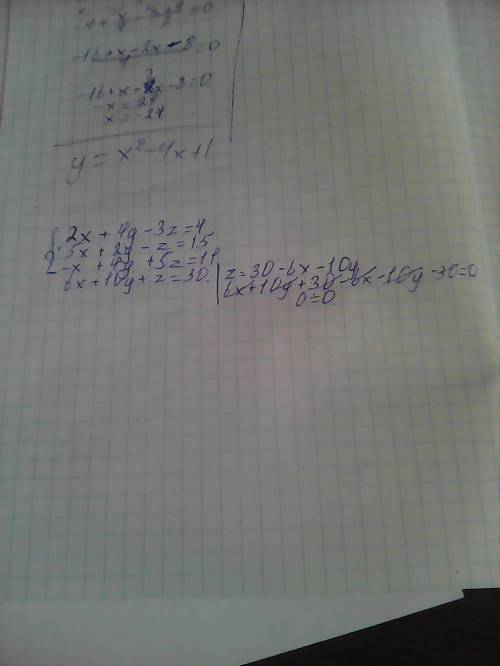 -16+xy-8x-8=0
x=24
x=-24
y=x²-4x+1
2x+4y-3z=4
5x+2y-z=15
-x+4y+5z=11
6x+10y+z=30
z=30-6x-10y
6x+10y+30-6x-10y-30=0
0=0